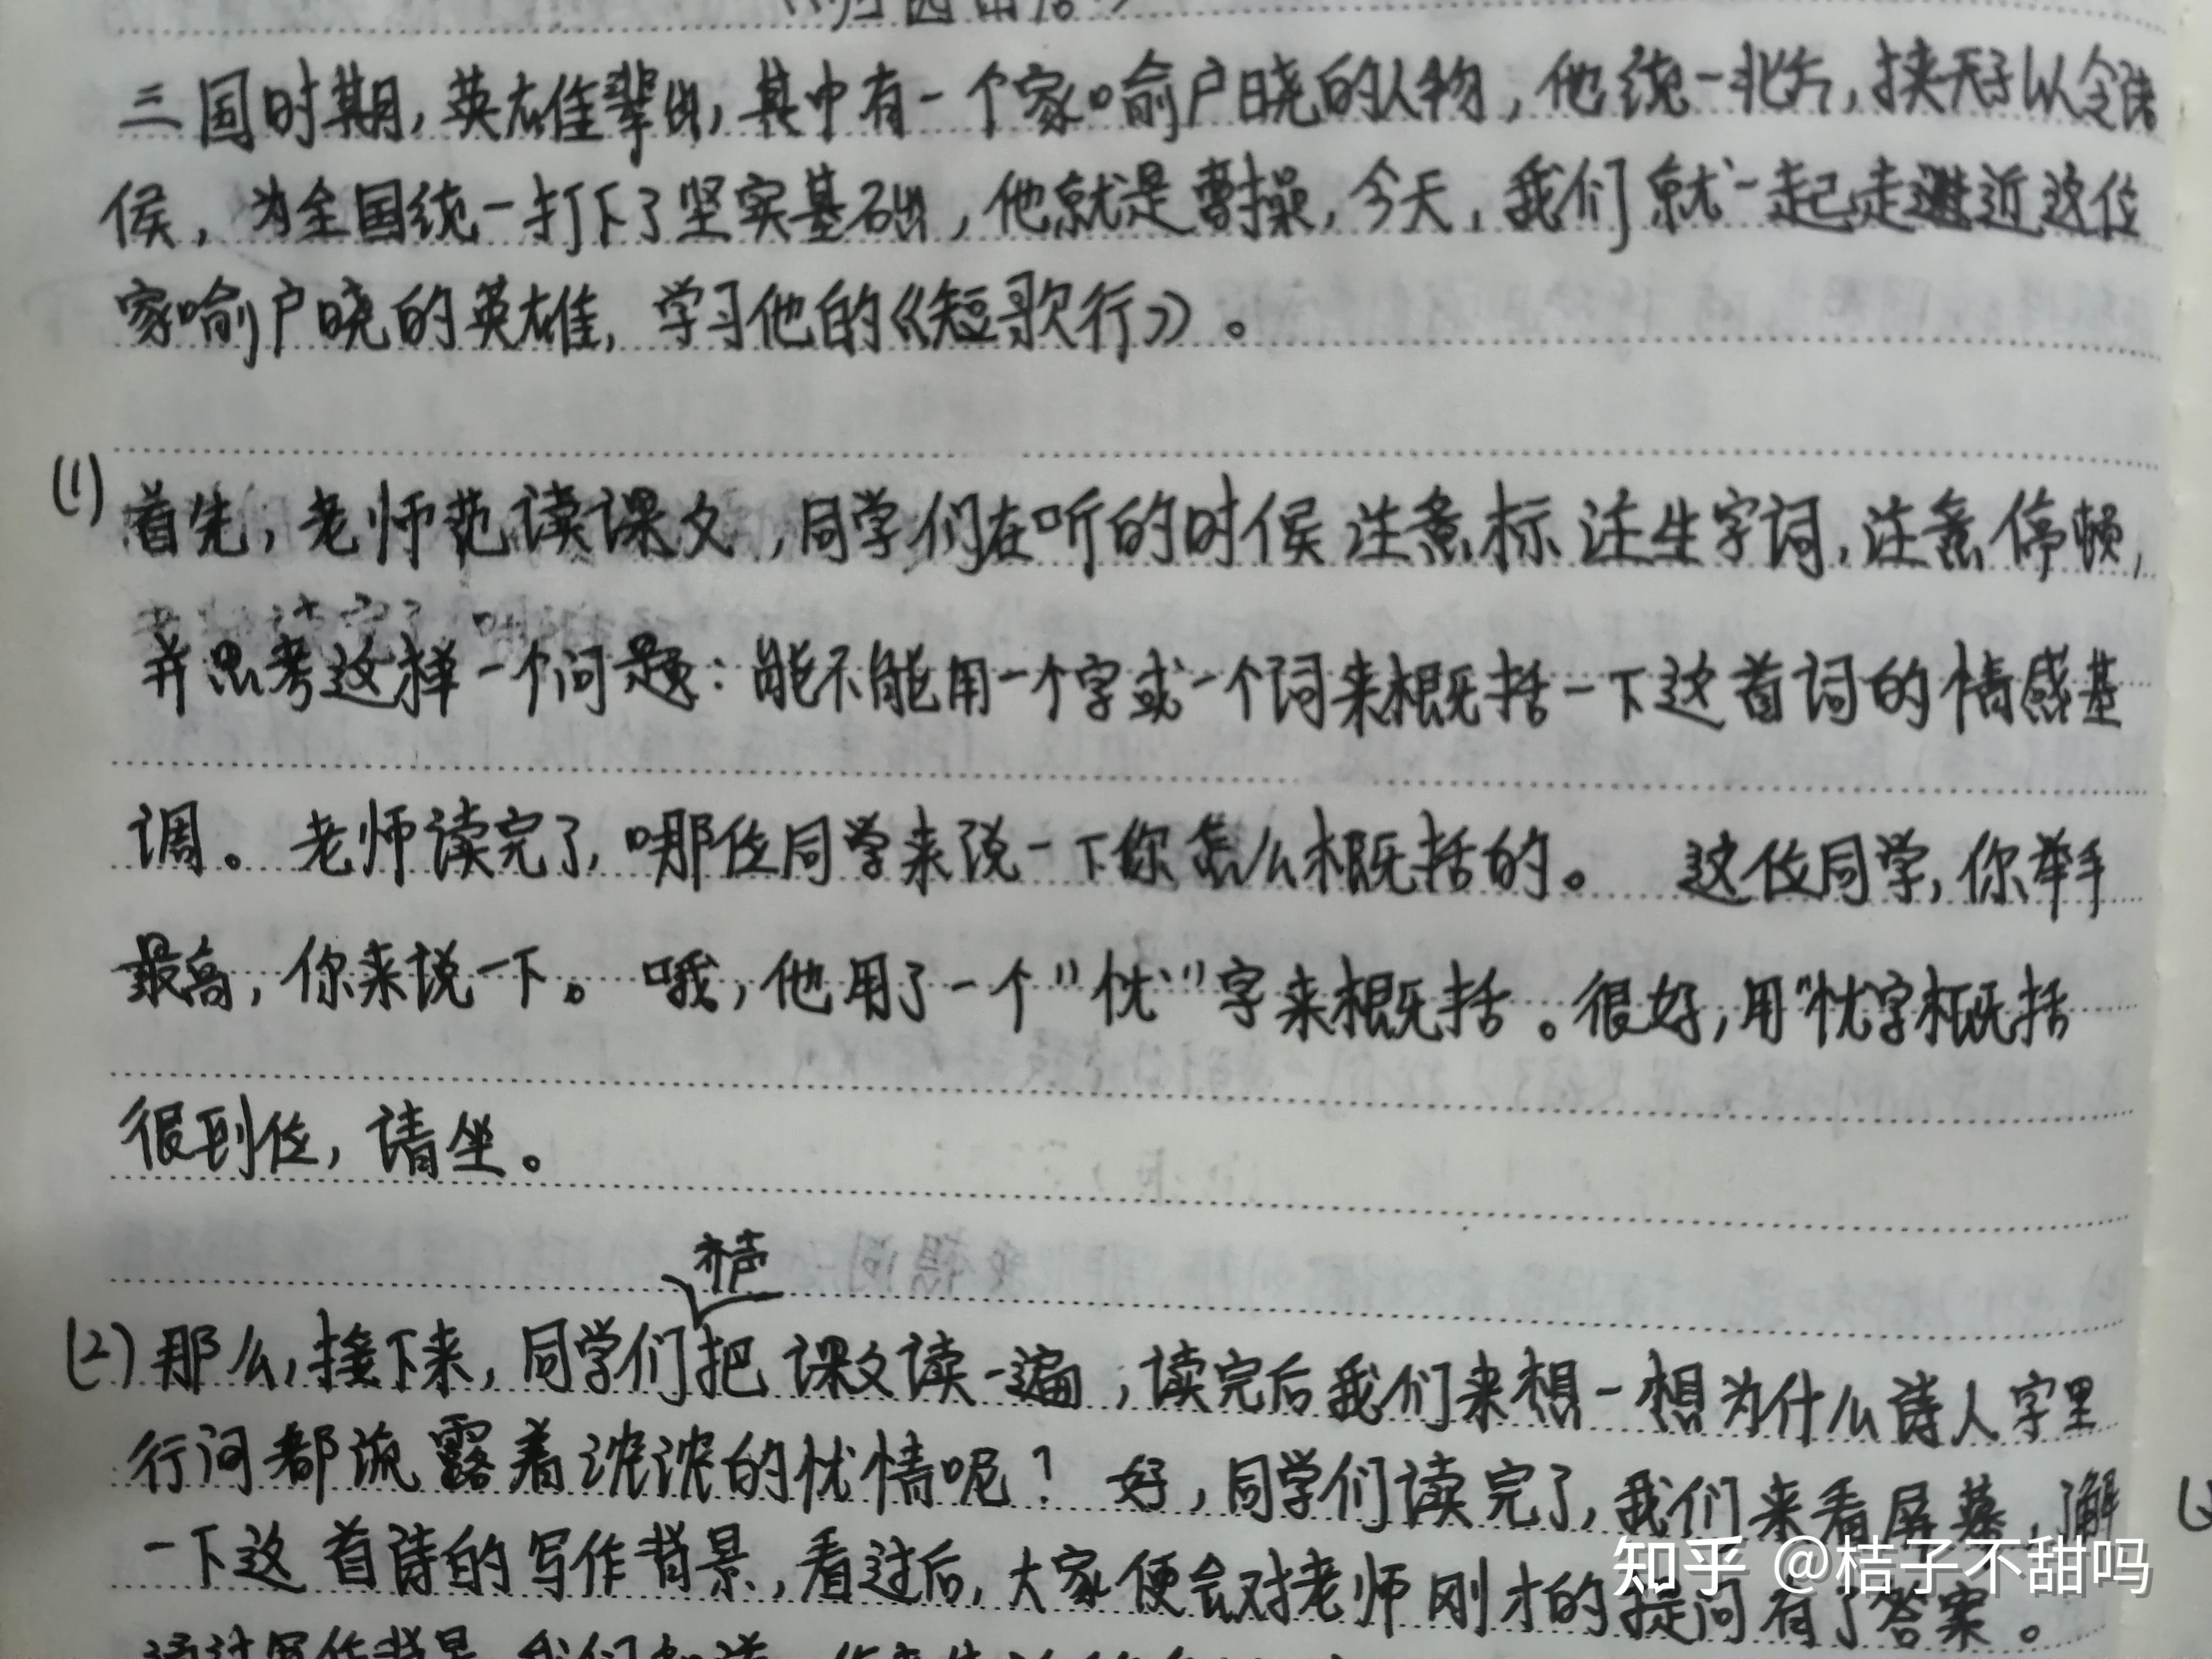 《归园田居》
三国时期,英雄辈出,其中有一个家喻户晓的人物,他统一北方,挟天子以令诸
侯,为全国统一打下了坚实基础,他就是曹操,今天,我们就一起走近这位
家喻户晓的英雄,学习他的《短歌行》。
(1)首先,老师范读课文,同学们在听的时侯注意标注生字词,注意停顿,
并思考这样一个问题:能不能用一个字或一个词来概括一下这首词的情感基
调。老师读完了,哪位同学来说一下你怎么概括的。 这位同学,你举手
最高,你来说一下。哦,他用了一个"忧"字来概括。很好,用"忧字概括
很到位,请坐。
齐声
(2)那么,接下来,同学们把课文读一遍,读完后我们来想一想为什么诗人字里
行间都流露着浓浓的忧情呢?好,同学们读完了,我们来看屏幕,了解
一下这首诗的写作背景,看过后,大家便会对老师刚才的提问有了答案。
通过写作背景,我们知道
知乎 @桔子不甜吗